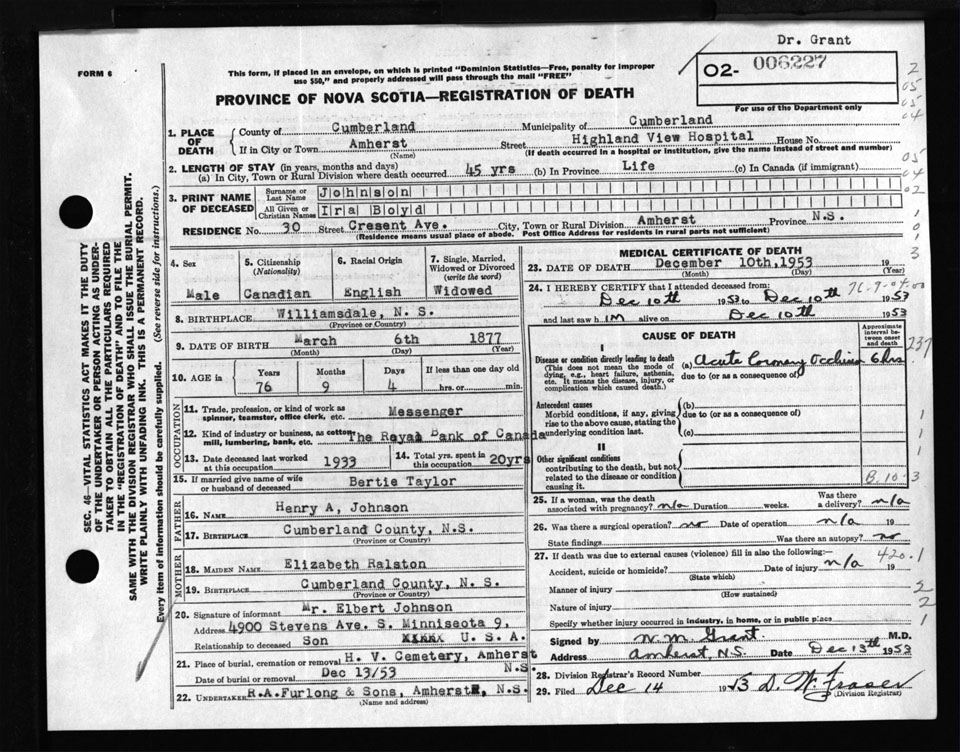 Dr. Grant
FORM 6
This form, if placed in an envelope, on which is printed "Dominion Statistics—Free, penalty for improper
use $50," and properly addressed will pass through the mail "FREE"
O2- 006227
For use of the Department only
PROVINCE OF NOVA SCOTIA—REGISTRATION OF DEATH
1. PLACE OF DEATH County of Cumberland Municipality of Cumberland
If in City or Town Amherst Street Highland View Hospital House No.
(Name) (If death occurred in a hospital or institution, give the name instead of street and number)
2. LENGTH OF STAY (in years, months and days)
(a) In City, Town or Rural Division where death occurred 45 yrs (b) In Province Life (c) In Canada (if immigrant)
3. PRINT NAME OF DECEASED Surname or Last Name Johnson
All Given or Christian Names Ira Boyd
RESIDENCE No. 30 Street Cresent Ave. City, Town or Rural Division Amherst Province N.S.
(Residence means usual place of abode. Post Office Address for residents in rural parts not sufficient)
4. Sex Male
5. Citizenship (Nationality) Canadian
6. Racial Origin English
7. Single, Married, Widowed or Divorced (write the word) Widowed
8. BIRTHPLACE Williamsdale, N. S.
(Province or Country)
9. DATE OF BIRTH March 6th 1877
(Month) (Day) (Year)
10. AGE in Years Months Days If less than one day old
76 9 4 hrs. or min.
OCCUPATION
11. Trade, profession, or kind of work as spinner, teamster, office clerk, etc. Messenger
12. Kind of industry or business, as cotton mill, lumbering, bank, etc. The Royal Bank of Canada
13. Date deceased last worked at this occupation 1933
14. Total yrs. spent in this occupation 20yrs
15. If married give name of wife or husband of deceased Bertie Taylor
FATHER
16. NAME Henry A, Johnson
17. BIRTHPLACE Cumberland County, N.S.
(Province or Country)
MOTHER
18. MAIDEN NAME Elizabeth Ralston
19. BIRTHPLACE Cumberland County, N. S.
(Province or Country)
20. Signature of informant Mr. Elbert Johnson
Address 4900 Stevens Ave. S. Minniseota 9,
Relationship to deceased Son U. S. A.
21. Place of burial, cremation or removal H. V. Cemetery, Amherst
Date of burial or removal Dec 13/53 N.S.
22. UNDERTAKER R.A.Furlong & Sons, Amherst, N.S.
(Name and address)
MEDICAL CERTIFICATE OF DEATH
23. DATE OF DEATH December 10th,1953 19
(Month) (Day) (Year)
24. I HEREBY CERTIFY that I attended deceased from:
Dec 10th 1953 to Dec 10th 1953
and last saw him alive on Dec 10th 1953
CAUSE OF DEATH
Approximate interval between onset and death
I
Disease or condition directly leading to death
(This does not mean the mode of dying, e.g., heart failure, asthenia, etc. It means the disease, injury, or complication which caused death.)
(a) Acute Coronary Occlusion 6 hrs
due to (or as a consequence of)
Antecedent causes
Morbid conditions, if any, giving rise to the above cause, stating the underlying condition last.
(b)
due to (or as a consequence of)
(c)
II
Other significant conditions
contributing to the death, but not related to the disease or condition causing it.
25. If a woman, was the death associated with pregnancy? n/a Duration weeks. Was there a delivery? n/a
26. Was there a surgical operation? no Date of operation n/a 19
State findings Was there an autopsy? no
27. If death was due to external causes (violence) fill in also the following:—
Accident, suicide or homicide? Date of injury n/a 19
(State which)
Manner of injury
(How sustained)
Nature of injury
Specify whether injury occurred in industry, in home, or in public place
Signed by N. M. Grant M.D.
Address Amherst, N.S. Date Dec 13th 1953
28. Division Registrar's Record Number
29. Filed Dec 14 1953 D. W. Fraser
(Division Registrar)
420.1
237
SEC. 46—VITAL STATISTICS ACT MAKES IT THE DUTY
OF THE UNDERTAKER OR PERSON ACTING AS UNDER-
TAKER TO OBTAIN ALL THE PARTICULARS REQUIRED
IN THE "REGISTRATION OF DEATH" AND TO FILE THE
SAME WITH THE DIVISION REGISTRAR WHO SHALL ISSUE THE BURIAL PERMIT.
WRITE PLAINLY WITH UNFADING INK. THIS IS A PERMANENT RECORD.
Every item of information should be carefully supplied. (See reverse side for instructions.)